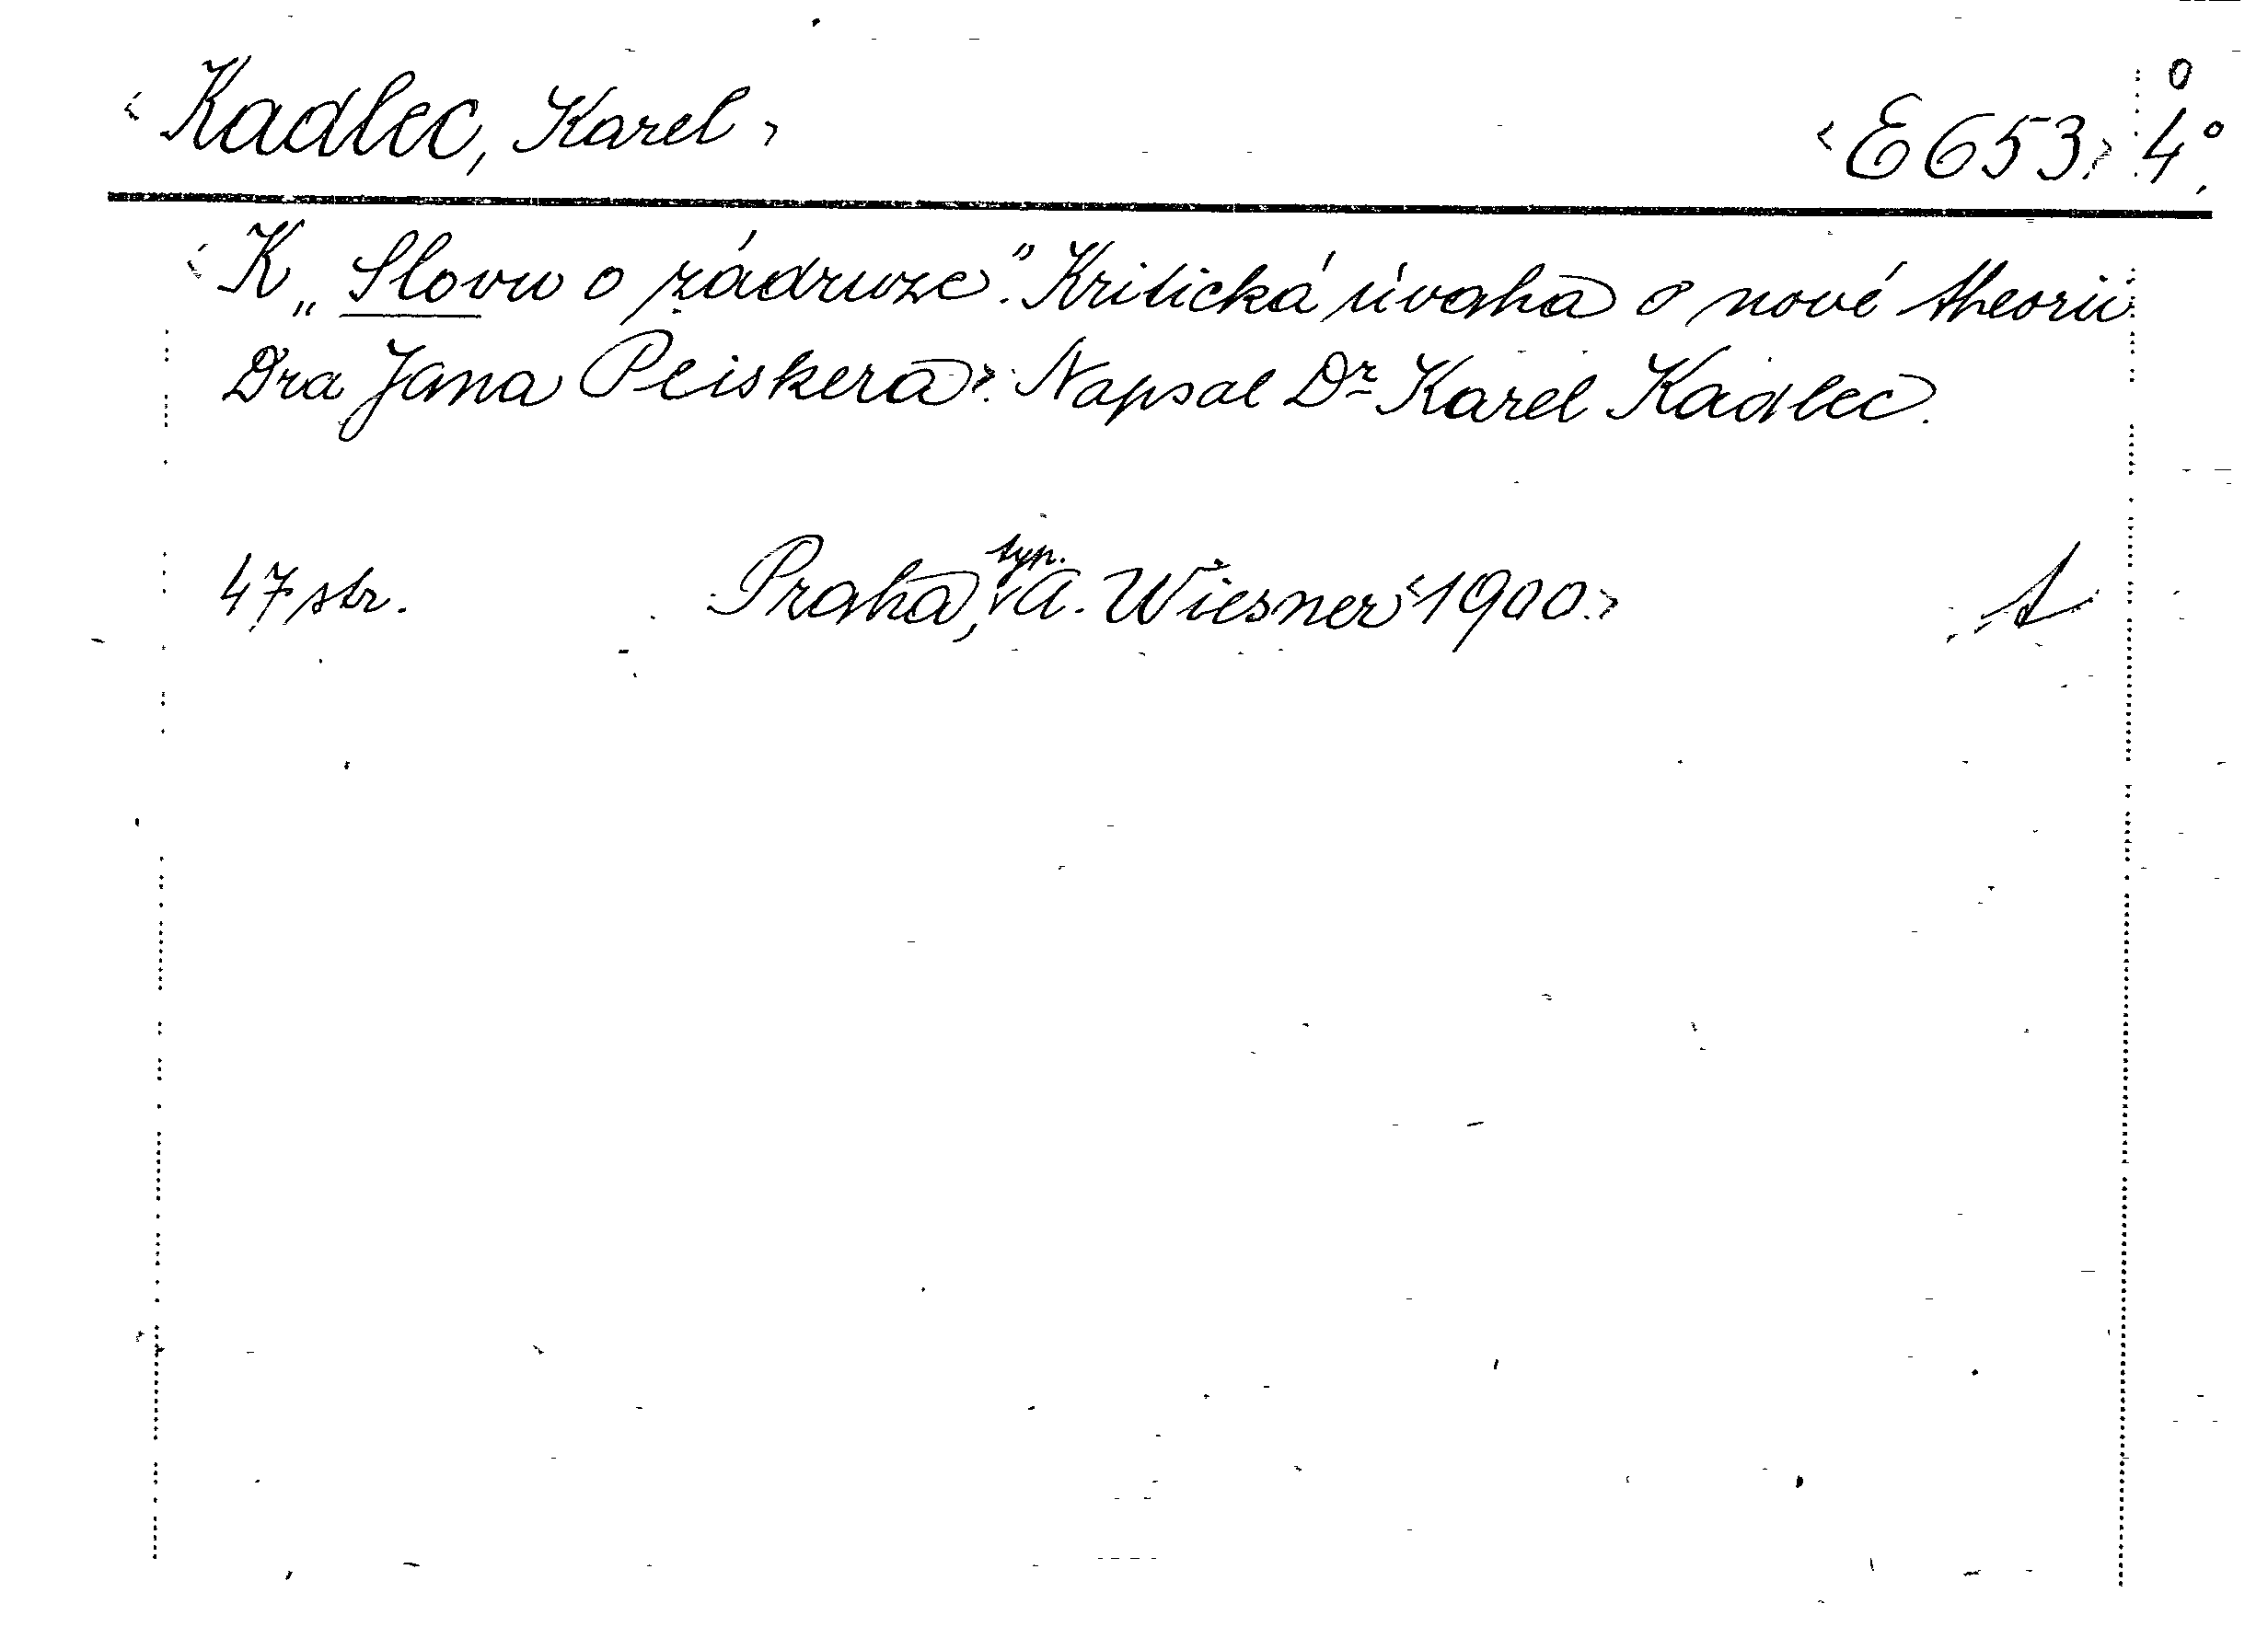 ‹Kadlec, Karel› ‹E 653› 4°
K „Slovu o zádruze." Kritická úvaha o nové theorii
Dra Jana Peiskera›. Napsal Dr Karel Kadlec.
47 str. Praha, typ. A. Wiesner ‹1900.›